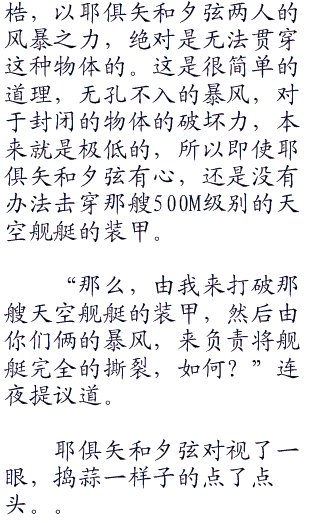 梏，以耶俱矢和夕弦两人的
风暴之力，绝对是无法贯穿
这种物体的。这是很简单的
道理，无孔不入的暴风，对
于封闭的物体的破坏力，本
来就是极低的，所以即使耶
俱矢和夕弦有心，还是没有
办法击穿那艘500M级别的天
空舰艇的装甲。
“那么，由我来打破那
艘天空舰艇的装甲，然后由
你们俩的暴风，来负责将舰
艇完全的撕裂，如何？”连
夜提议道。
耶俱矢和夕弦对视了一
眼，捣蒜一样子的点了点
头。。